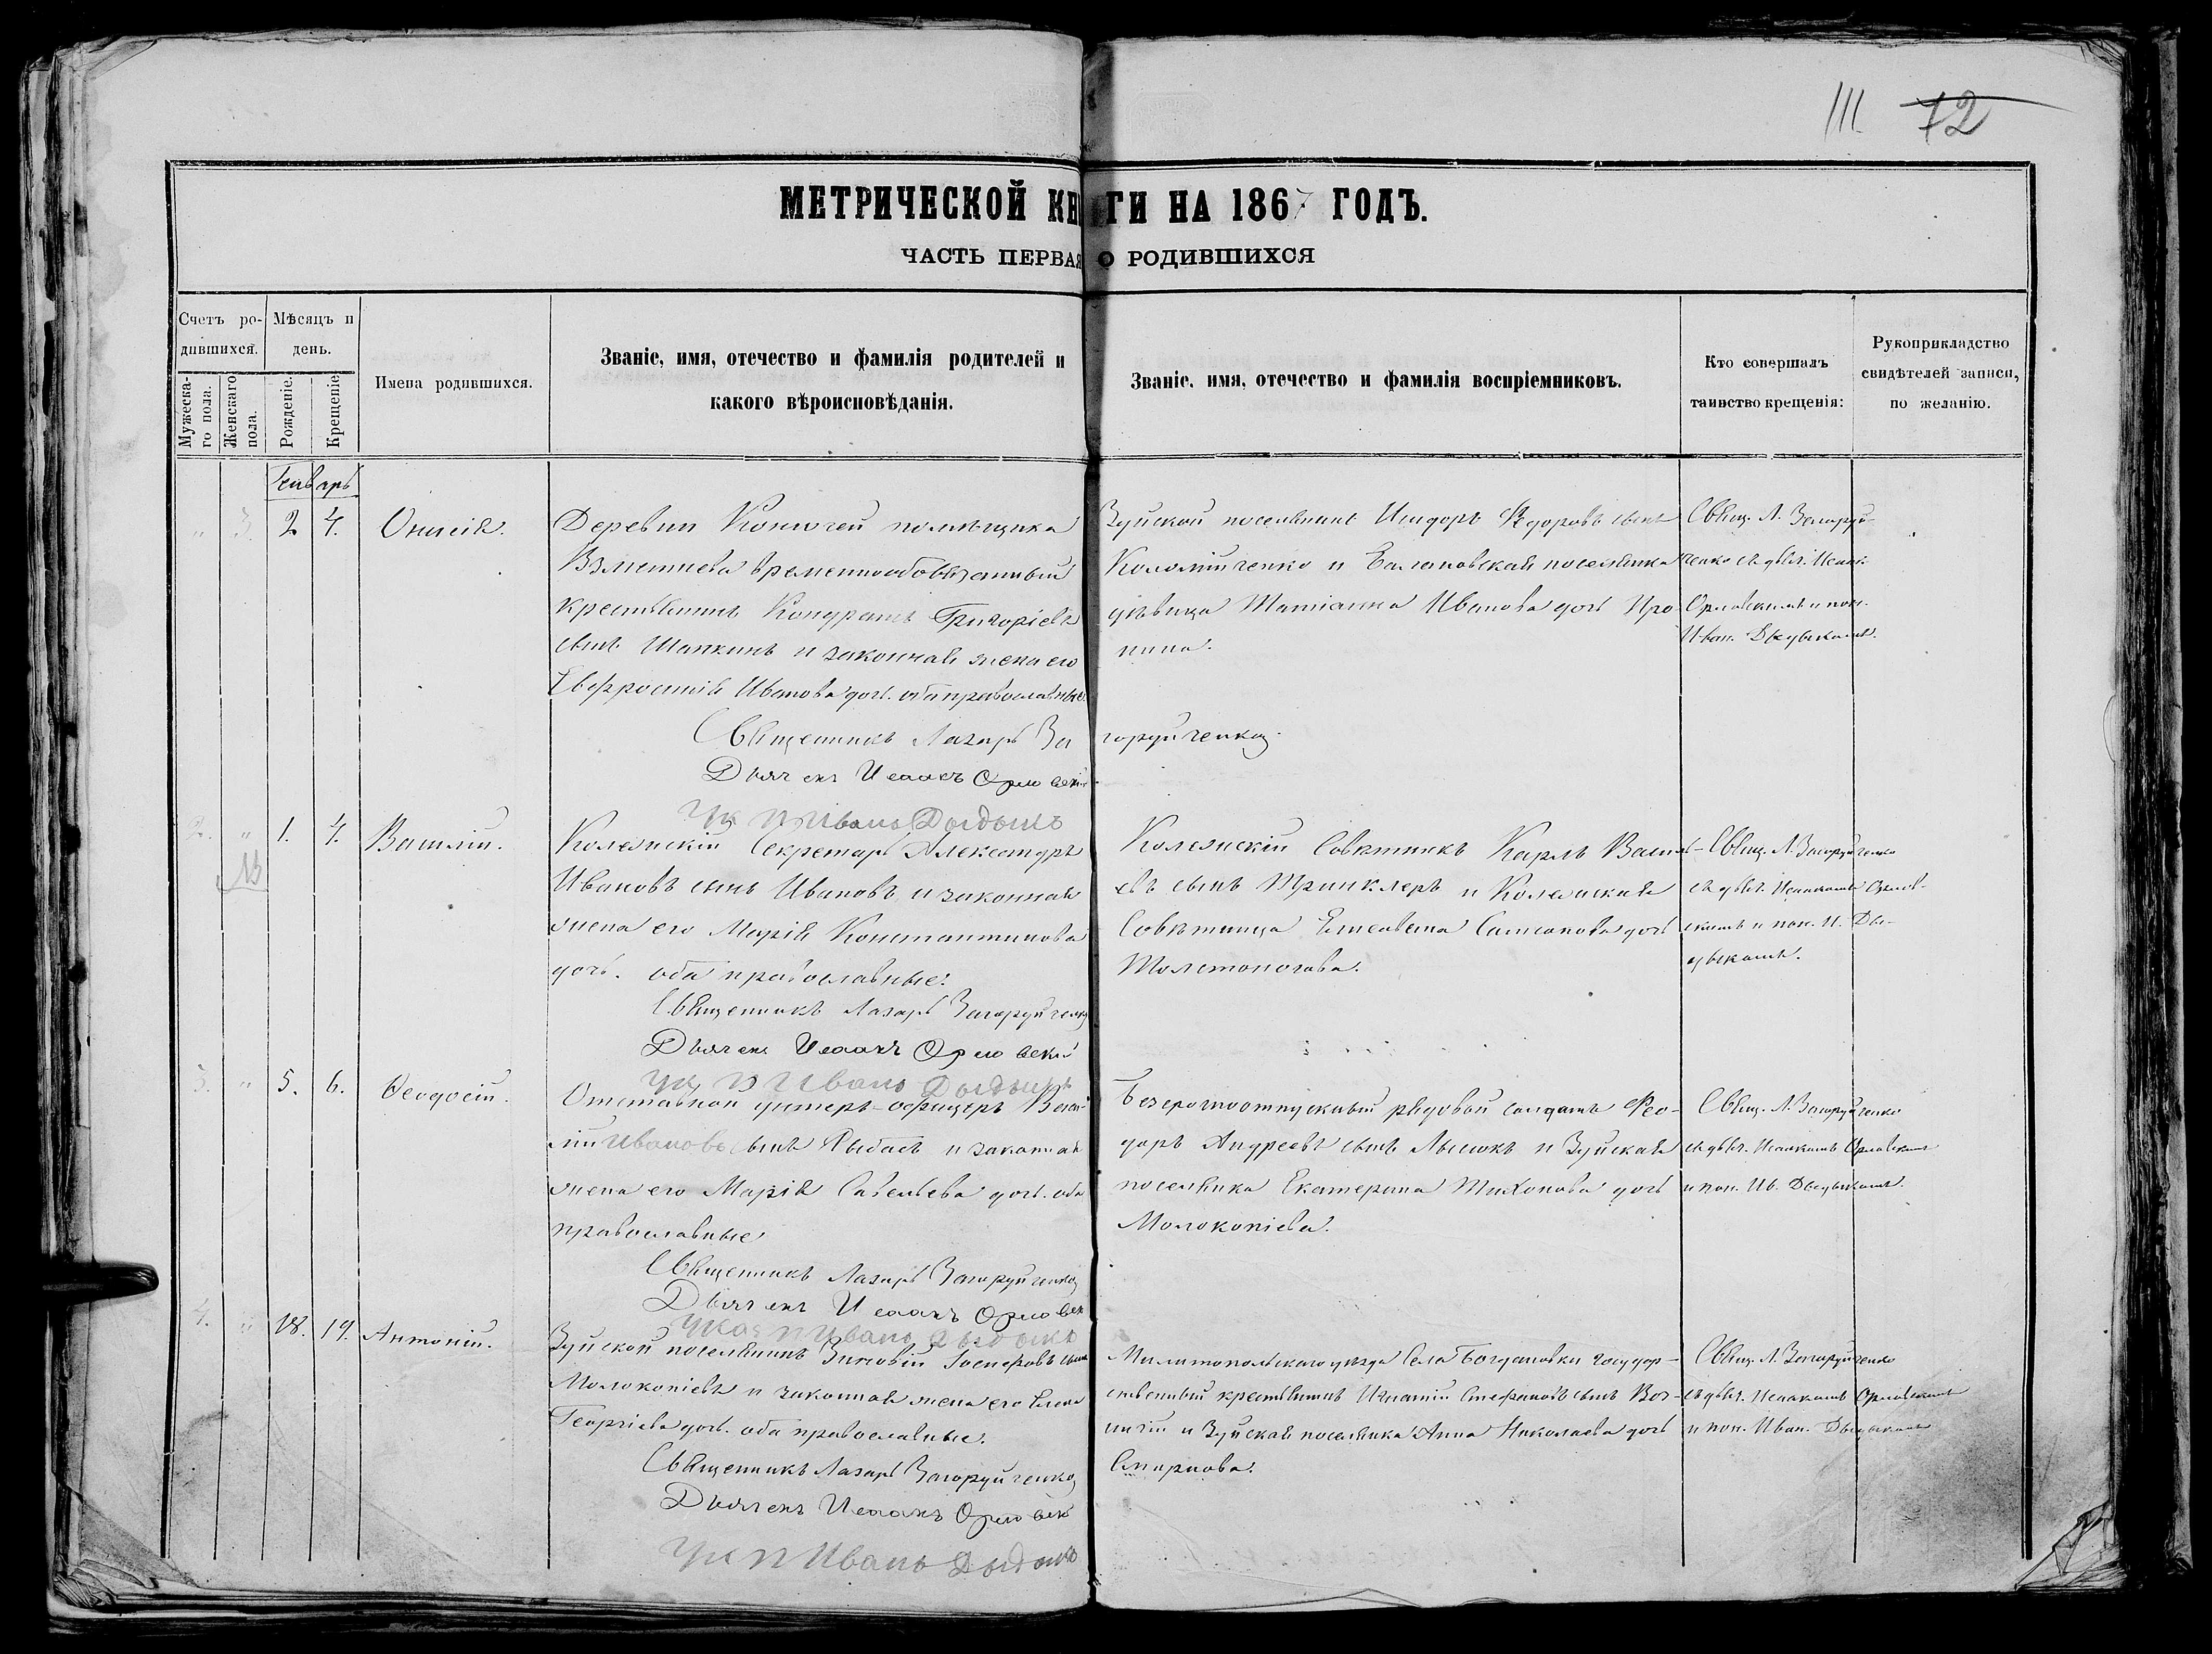 III 72
МЕТРИЧЕСКОЙ КНИГИ НА 1867 ГОДЪ.
ЧАСТЬ ПЕРВАЯ О РОДИВШИХСЯ
Счетъ ро-
дившихся.
Мужеска-
го пола.
Женскаго
пола.
Мѣсяцъ и
день.
Рожденіе.
Крещеніе.
Имена родившихся.
Званіе, имя, отечество и фамилія родителей и
какого вѣроисповѣданія.
Званіе, имя, отечество и фамилія воспріемниковъ.
Кто совершалъ
таинство крещенія:
Рукоприкладство
свидѣтелей записи,
по желанію.
Генварь
" 3. 2 4. Онисія.
Деревни помѣщика
временнообязанный
крестьянинъ Кондратъ Григорьевъ
сынъ Шапкинъ и законная жена его
Евфросинія Иванова дочь. оба православные.
Священникъ Лазарь Загоруйченко
Дьячекъ Исаакъ Орловскій
Ук П Иванъ Дыдыкъ
Зуйской поселянинъ Исидоръ Ѳедоровъ сынъ
Коломійченко и поселянка
дѣвица Татіанна Иванова дочь Про-
нина.
Свящ. Л. Загоруй-
ченко съ дьяч. Исаак.
Орловскимъ и пон.
Иван. Дыдыкомъ.
2. " 1. 4. Василій.
13
Колежскій Секретарь Александръ
Ивановъ сынъ Ивановъ, и законная
жена его Марія Константинова
дочь. оба православные.
Священникъ Лазарь Загоруйченко
Дьячекъ Исаакъ Орловскій
Ук П Иванъ Дыдыкъ
Колежскій Совѣтникъ Карлъ Василь-
евъ сынъ Тринклеръ и Колежская
Совѣтница Елисавета Самсонова дочь
Толстоногова.
Свящ. Л. Загоруйченко
съ дьяч. Исаакомъ Орлов-
скимъ и пон. И. Ды-
дыкомъ.
3. " 5. 6. Ѳеодосій.
Отставной унтеръ-офицеръ Васи-
лій Ивановъ сынъ Рыбась и законная
жена его Марія Савельева дочь. оба
православные
Священникъ Лазарь Загоруйченко
Дьячекъ Исаакъ Орловск
Указ П Иванъ Дыдыкъ
Безсрочноотпускный рядовой солдатъ Ѳео-
доръ Андреевъ сынъ Лысюкъ и Зуйская
поселянка Екатерина Тихонова дочь
Молокопіева.
Свящ. Л. Загоруйченко
съ дьяч. Исаакомъ Орловскимъ
и пон. Ив. Дыдыкомъ.
4. " 18. 19. Антоній.
Зуйской поселянинъ Зиновій сынъ
Молокопіевъ и законная жена его Елена
Георгіева дочь. оба православные.
Священникъ Лазарь Загоруйченко
Дьячекъ Исаакъ Орловск
Ук П Иванъ Дыдыкъ
Милитопольскаго уѣзда Села Богдановки государ-
ственный крестьянинъ Игнатій Стефановъ сынъ
и Зуйская поселянка Анна Николаева дочь
Смирнова.
Свящ. Л. Загоруйченко
съ дьяч. Исаакомъ Орловскимъ
и пон. Иван. Дыдыкомъ